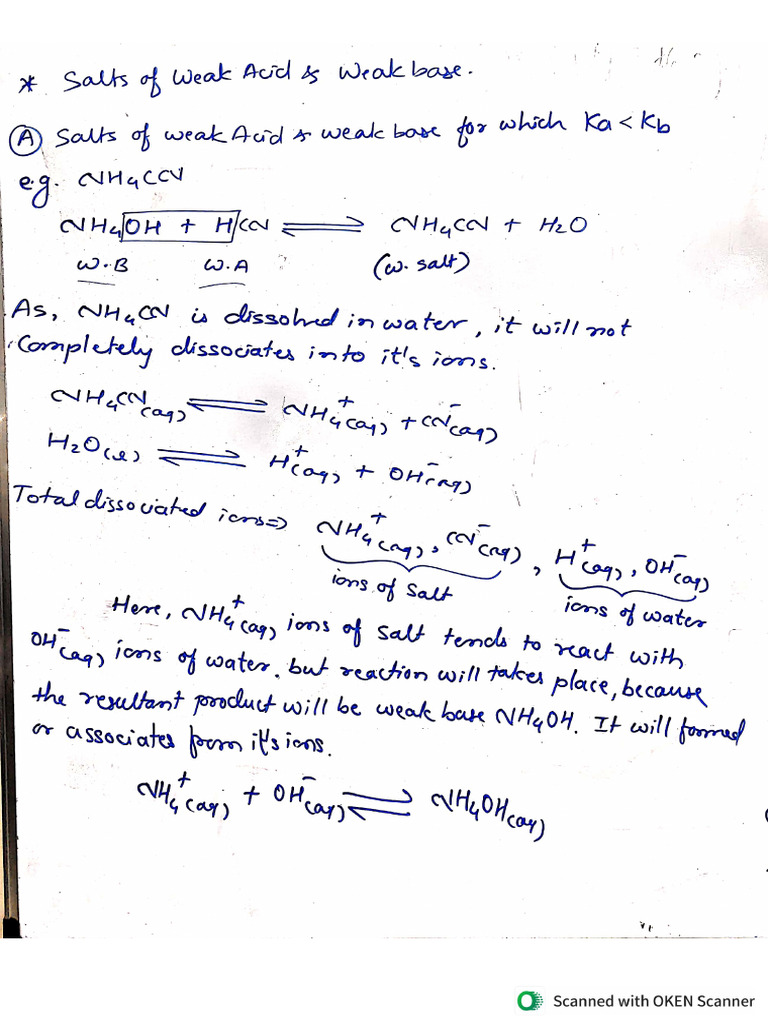 * Salts of Weak Acid & Weak base.
Ⓐ Salts of weak Acid & weak base for which Ka < Kb
e.g. NH4CN
NH4OH + HCN ⇌ NH4CN + H2O
W.B W.A (w. salt)
As, NH4CN is dissolved in water, it will not
completely dissociates into it's ions.
NH4CN(aq) ⇌ NH4+(aq) + CN-(aq)
H2O(l) ⇌ H+(aq) + OH-(aq)
Total dissociated ions ⇒ NH4+(aq), CN-(aq), H+(aq), OH-(aq)
ions of salt ions of water
Here, NH4+(aq) ions of salt tends to react with
OH-(aq) ions of water. but reaction will takes place, because
the resultant product will be weak base NH4OH. It will formed
or associates from it's ions.
NH4+(aq) + OH-(aq) ⇌ NH4OH(aq)
Scanned with OKEN Scanner